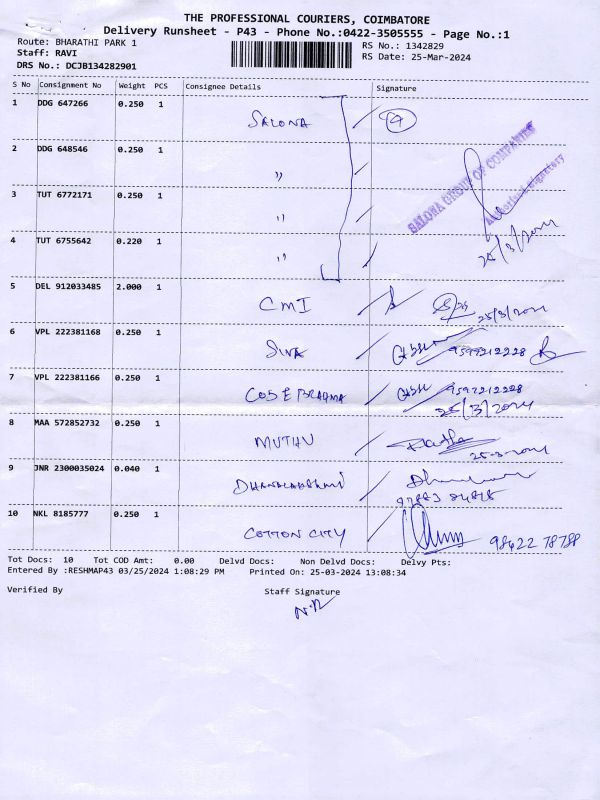 THE PROFESSIONAL COURIERS, COIMBATORE
Delivery Runsheet - P43 - Phone No.:0422-3505555 - Page No.:1
Route: BHARATHI PARK 1
RS No.: 1342829
Staff: RAVI
RS Date: 25-Mar-2024
DRS No.: DCJB134282901
S No Consignment No Weight PCS Consignee Details Signature
1 DDG 647266 0.250 1 SALONA 4
2 DDG 648546 0.250 1 "
SALONA GROUP OF COMPANIES
Authorised Signatory
3 TUT 6772171 0.250 1 "
25/3/2024
4 TUT 6755642 0.220 1 "
5 DEL 912033485 2.000 1 CMI 25/3/2024
6 VPL 222381168 0.250 1 SIVA 9597212228
7 VPL 222381166 0.250 1 CODE BRAHMA 9597212228
25/3/2024
8 MAA 572852732 0.250 1 MUTHU
25-3-2024
9 JNR 2300035024 0.040 1 DHANALAKSHMI
10 NKL 8185777 0.250 1 COTTON CITY 98422 78788
Tot Docs: 10 Tot COD Amt: 0.00 Delvd Docs: Non Delvd Docs: Delvy Pts:
Entered By :RESHMAP43 03/25/2024 1:08:29 PM Printed On: 25-03-2024 13:08:34
Verified By Staff Signature